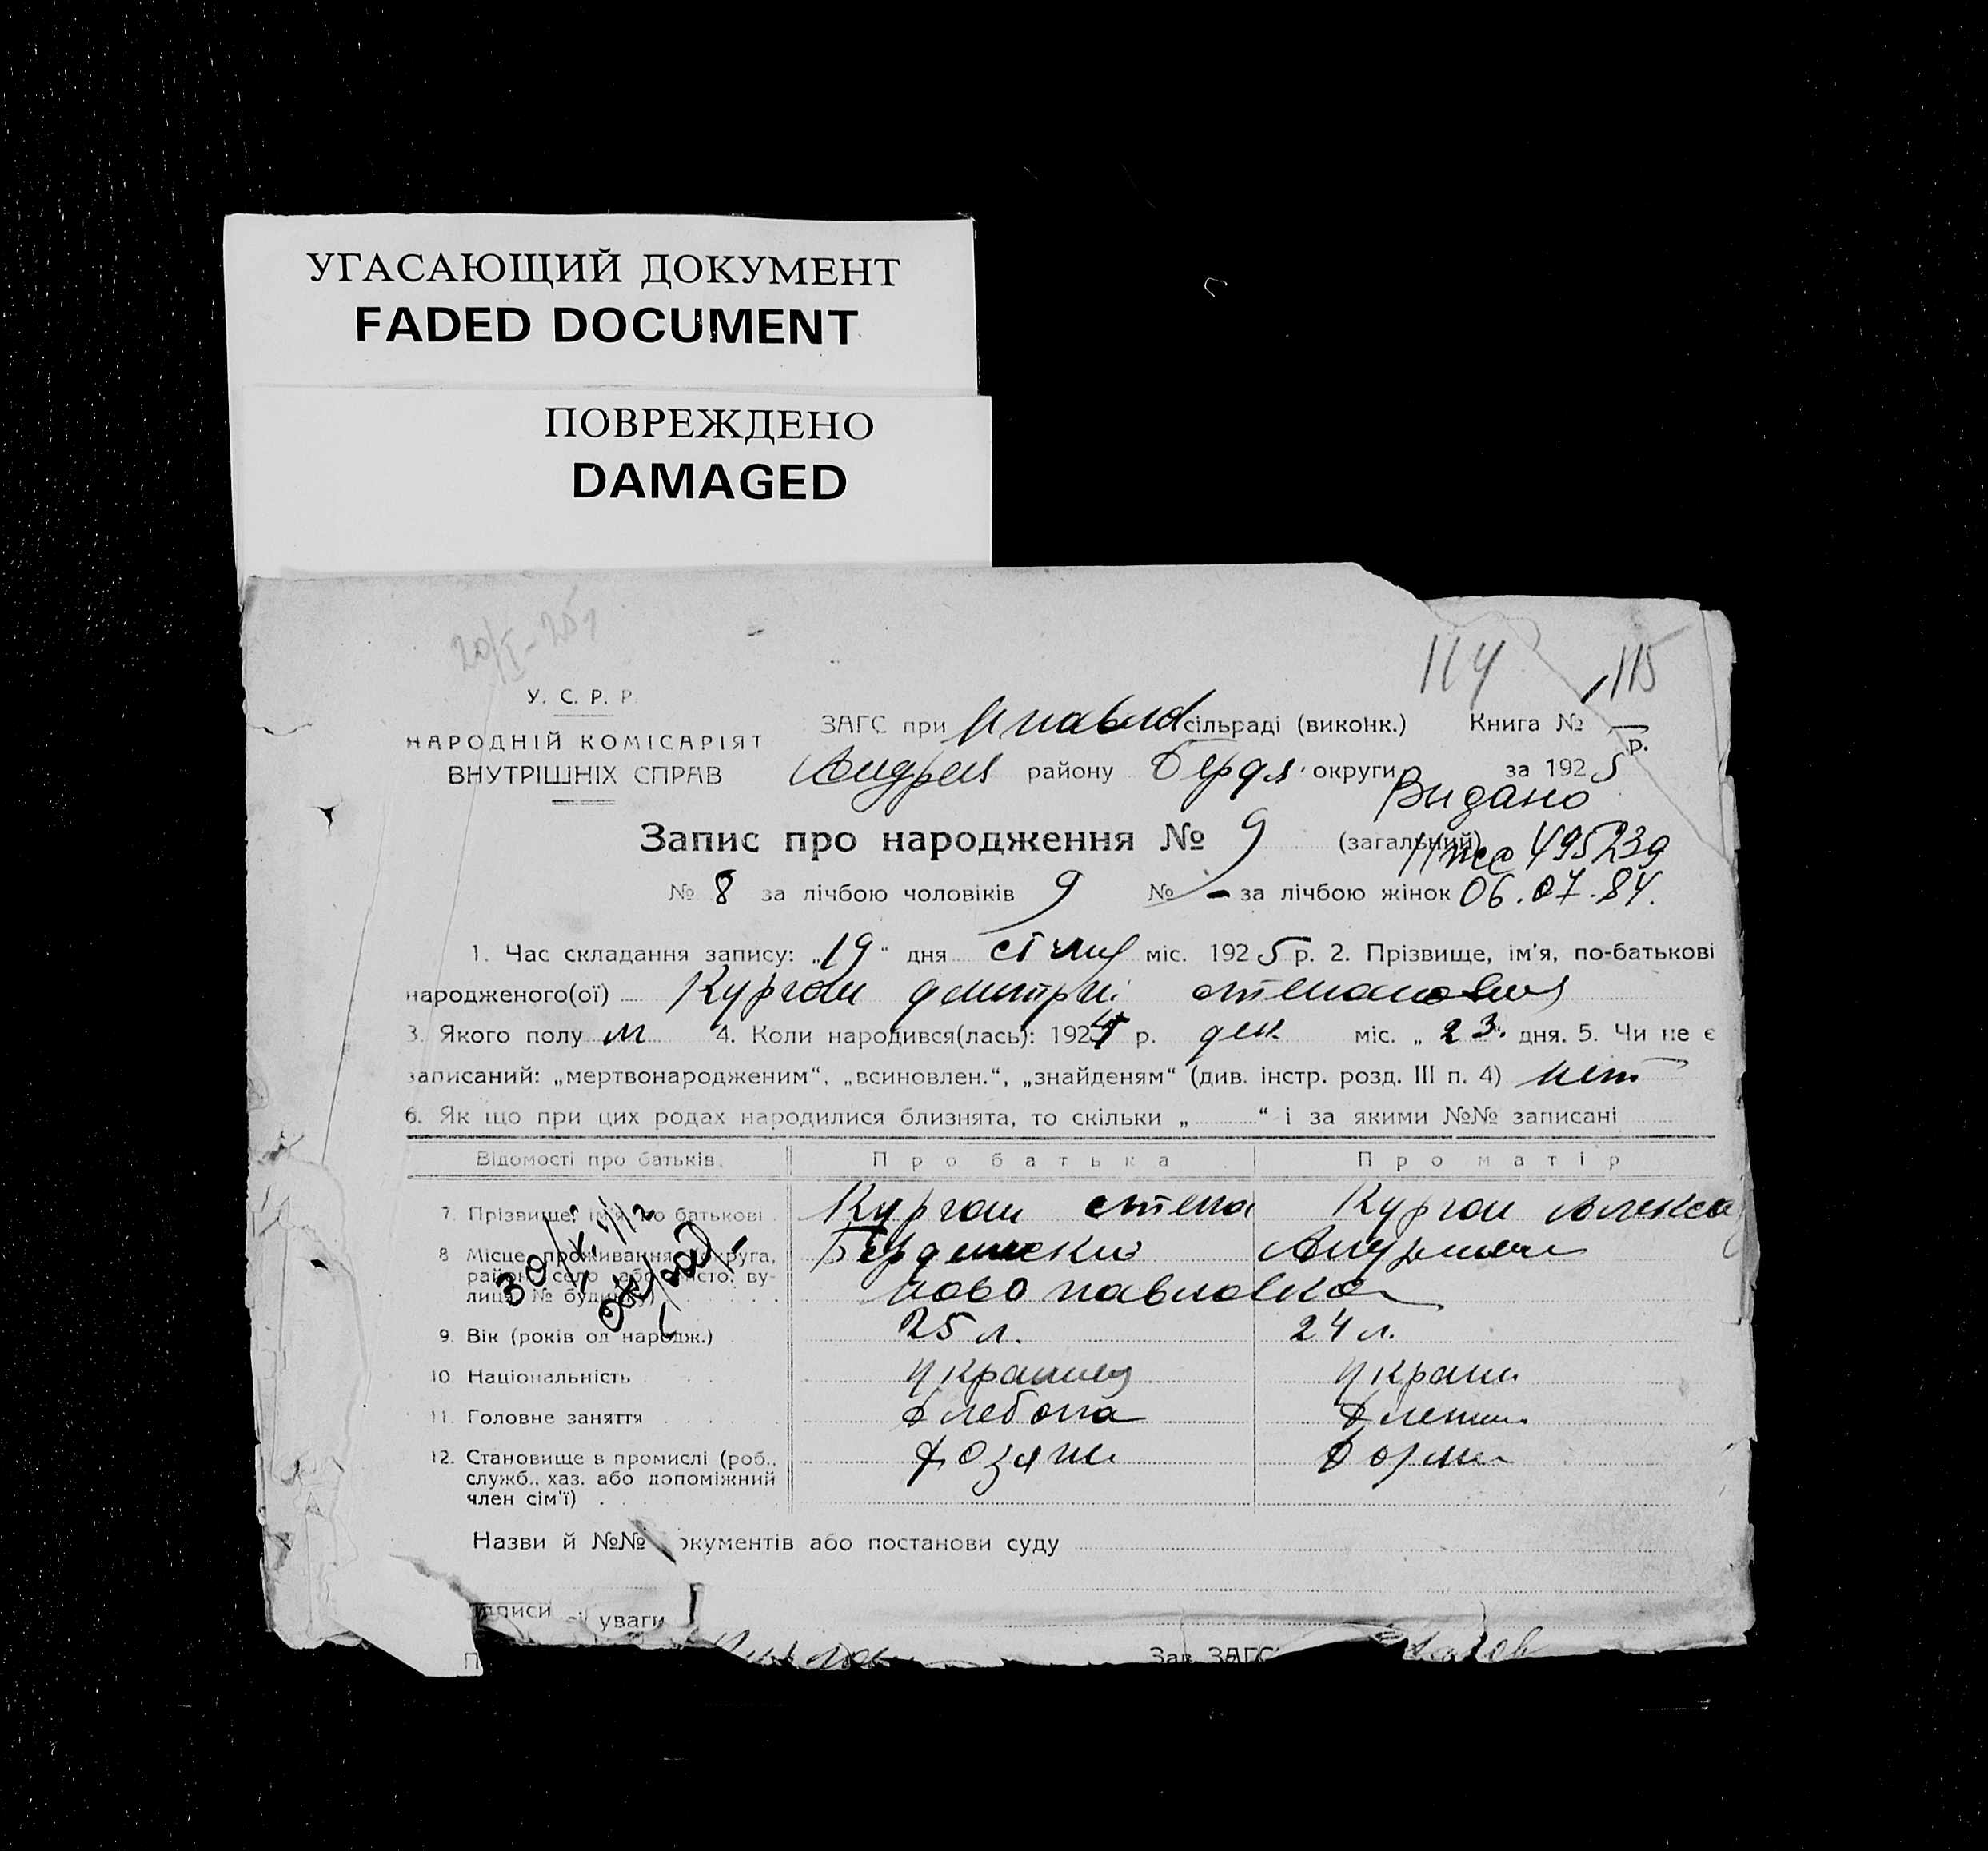 УГАСАЮЩИЙ ДОКУМЕНТ
FADED DOCUMENT
ПОВРЕЖДЕНО
DAMAGED
20/I-25
114 115
У. С. Р. Р.
НАРОДНІЙ КОМІСАРІЯТ
ВНУТРІШНІХ СПРАВ
ЗАГС при сільраді (виконк.) Книга №
Андрея району Бердя. округи за 1925 р.
Видано
Запис про народження № 9 (загальний) 495239
№ 8 за лічбою чоловіків 9 № - за лічбою жінок 06.07.84.
1. Час складання запису: „19“ дня січня міс. 1925 р. 2. Прізвище, ім'я, по-батькові
народженого(ої) Курган дмитрий степанович
3. Якого полу м 4. Коли народився(лась): 1924 р. дек міс. „23“ дня. 5. Чи не є
записаний: „мертвонародженим“, „всиновлен.“, „знайденям“ (див. інстр. розд. III п. 4) нет
6. Як що при цих родах народилися близнята, то скільки „ “ і за якими №№ записані
Відомості про батьків. Про батька Про матір
7. Прізвище, ім'я, по батькові Курган степа Курган Алекса
8 Місце проживання (округа, район, село або місто, вулиця, № будинку)
ново павловка
9. Вік (років од народж.) 25 л. 24 л.
10 Національність украинец украин
11. Головне заняття хлебопа
12. Становище в промислі (роб., хозяин
служб., хаз. або допоміжний
член сім'ї)
Назви й №№ документів або постанови суду
уваги
Зав. ЗАГС